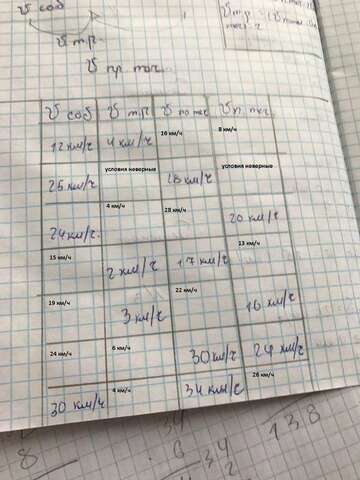 V соб
V т.р.
V пр теч.
V соб V т.р V по теч V п теч
12 км/ч 4 км/ч 16 км/ч 8 км/ч
25 км/ч условия неверные 28 км/ч условия неверные
24 км/ч. 4 км/ч 28 км/ч 20 км/ч
15 км/ч 2 км/ч 17 км/ч 13 км/ч
19 км/ч 3 км/ч 22 км/ч 16 км/ч
24 км/ч 6 км/ч 30 км/ч 24 км/ч
30 км/ч 4 км/ч 34 км/ч 26 км/ч
8
34
6
34
2
138